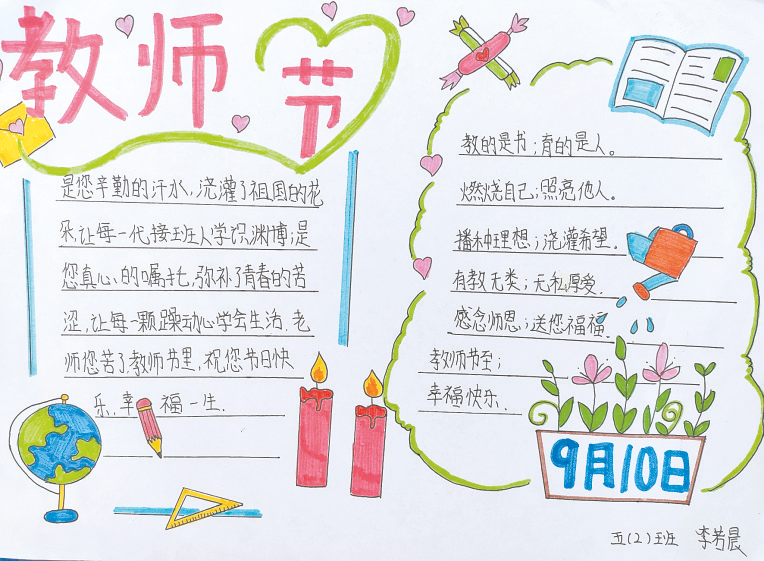 教师节
是您辛勤的汗水,浇灌了祖国的花
朵,让每一代接班人学识渊博;是
您真心的嘱托,弥补了青春的苦
涩,让每一颗躁动心学会生活.老
师您苦了,教师节里,祝您节日快
乐,幸福一生.
教的是书;育的是人。
燃烧自己;照亮他人。
播种理想;浇灌希望.
有教无类;无私厚爱.
感念师恩;送您福福.
教师节至;
幸福快乐.
9月10日
五(2)班 李若晨